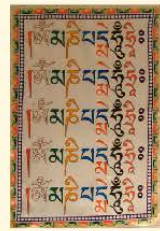 ༀ་མ་ཎི་པདྨེ་ཧཱུྃ་ཧྲཱིཿ
ༀ་མ་ཎི་པདྨེ་ཧཱུྃ་ཧྲཱིཿ
ༀ་མ་ཎི་པདྨེ་ཧཱུྃ་ཧྲཱིཿ
ༀ་མ་ཎི་པདྨེ་ཧཱུྃ་ཧྲཱིཿ
ༀ་མ་ཎི་པདྨེ་ཧཱུྃ་ཧྲཱིཿ